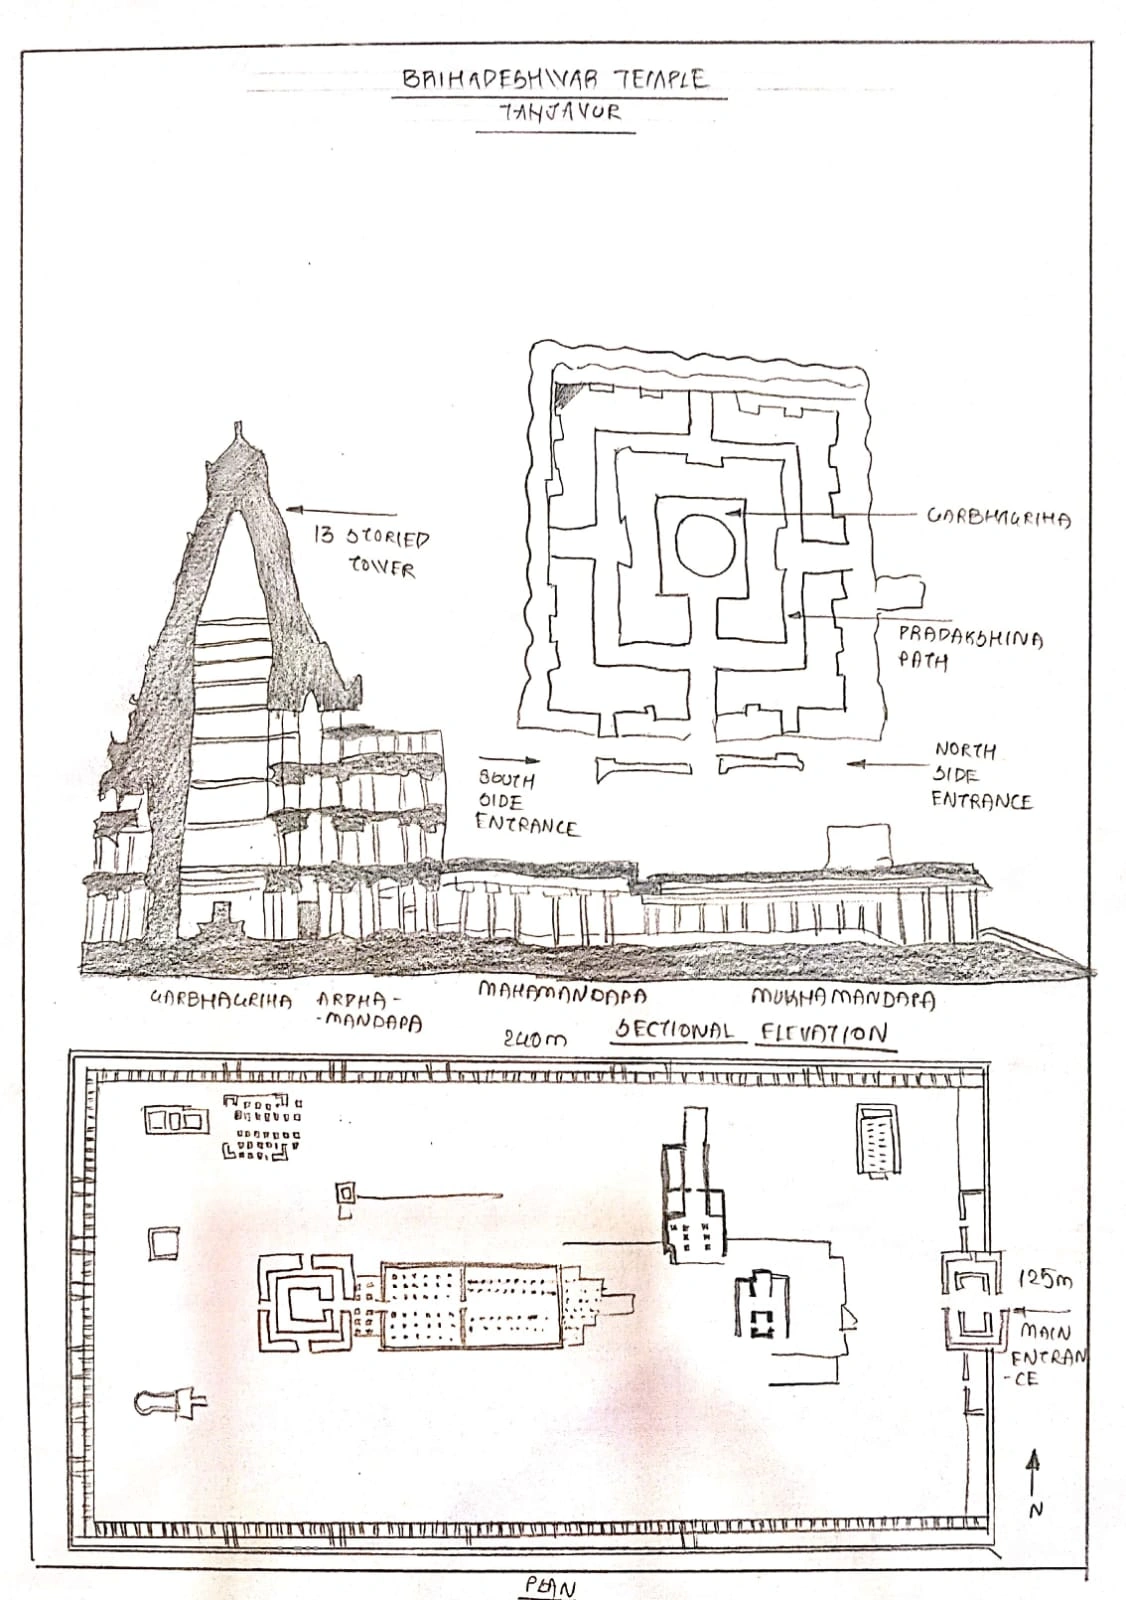 BRIHADESHWAR TEMPLE
TANJAVUR
13 STORIED
TOWER
GARBHAGRIHA
PRADAKSHINA
PATH
SOUTH
SIDE
ENTRANCE
NORTH
SIDE
ENTRANCE
GARBHAGRIHA
ARDHA-
-MANDAPA
MAHAMANDAPA
MUKHAMANDAPA
SECTIONAL ELEVATION
240m
125m
MAIN
ENTRAN
-CE
N
PLAN